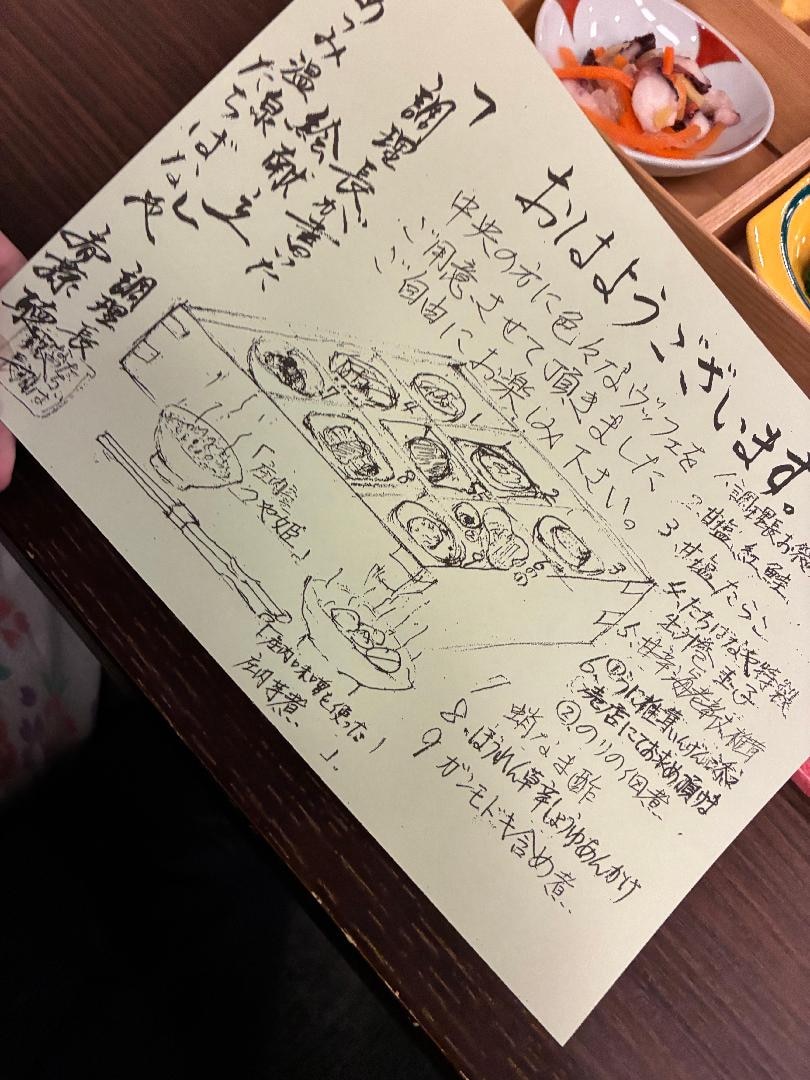 おはようございます。
中央の方に色々なヴッフェを
ご用意させて頂きました
ご自由にお楽しみ下さい。
調理長が書いた
絵献立
つみ温泉
たちばなや
調理長
1.調理長お
2.甘塩紅鮭
3.甘塩たらこ
4.たちばなや特製
出汁巻玉子
5.甘海老
6.①うに椎茸
売店にてお求め頂けま
②のりの佃煮
7 蛸なま酢
8.ほうれん草辛しょうゆあんかけ
9 ガンモドキ含め煮
「庄内産
つや姫」
「庄内味噌を使た
庄内芋煮」
1
2
3
4
5
6
7
8
9